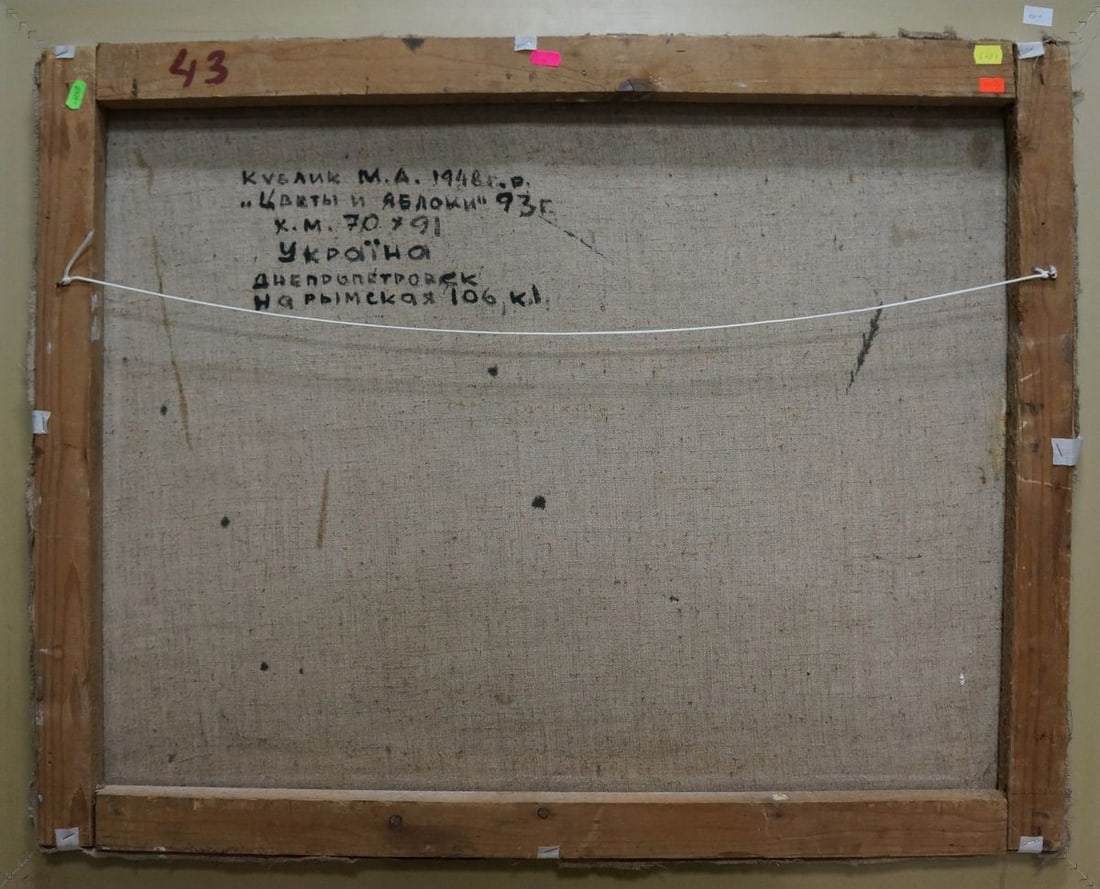 43
Кублик М.А. 1948г.р.
„Цветы и яблоки" 93г.
х.м. 70 х 91
Україна
Днепропетровск
Нарымская 106, к.1.